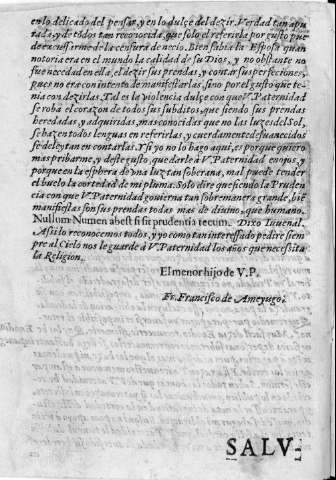 en lo delicado del pensar, y en lo dulçe del dezir. Verdad tan apu
rada, y de todos tan reconocida, que solo el referirla por gusto pue
de excusarme de la censura de necio. Bien sabia la Esposa quan
notoria era en el mundo la calidad de su Dios, y no obstante no
fue necedad en ella, el dezir sus prendas, y contar sus perfecciones,
pues no era con intento de manifestarlas, sino por el gusto que te-
nia con dezirlas. Tal es la violencia dulçe con que V. Paternidad
se roba el corazon de todos sus subditos, que siendo sus prendas
heredadas, y adquiridas, mas conocidas que no las luzes del Sol,
se hazen todos lenguas en referirlas, y cuerdamente desvanecidos
se deleytan en contarlas. Y si yo no lo hago aqui, es porque quiero
mas privarme, y de este gusto, que darle à V. Paternidad enojos, y
porque en la esphera de vna luz tan soberana, mal puede tender
el buelo la cortedad de mi pluma. Solo dire que siendo la Pruden
cia con que V. Paternidad govierna tan sobremanera grande, biē
manifiestas son sus prendas todas mas de divino, que humano.
Nullum Numen abest si sit prudentia tecum. Dixo Iuuenal.
Assi lo reconocemos todos, y yo como tan interessado pedire siem
pre al Cielo nos le guarde à V. Paternidad los años que necessita
la Religion.
El menor hijo de V. P.
Fr. Francisco de Ameyugo.
SALV-